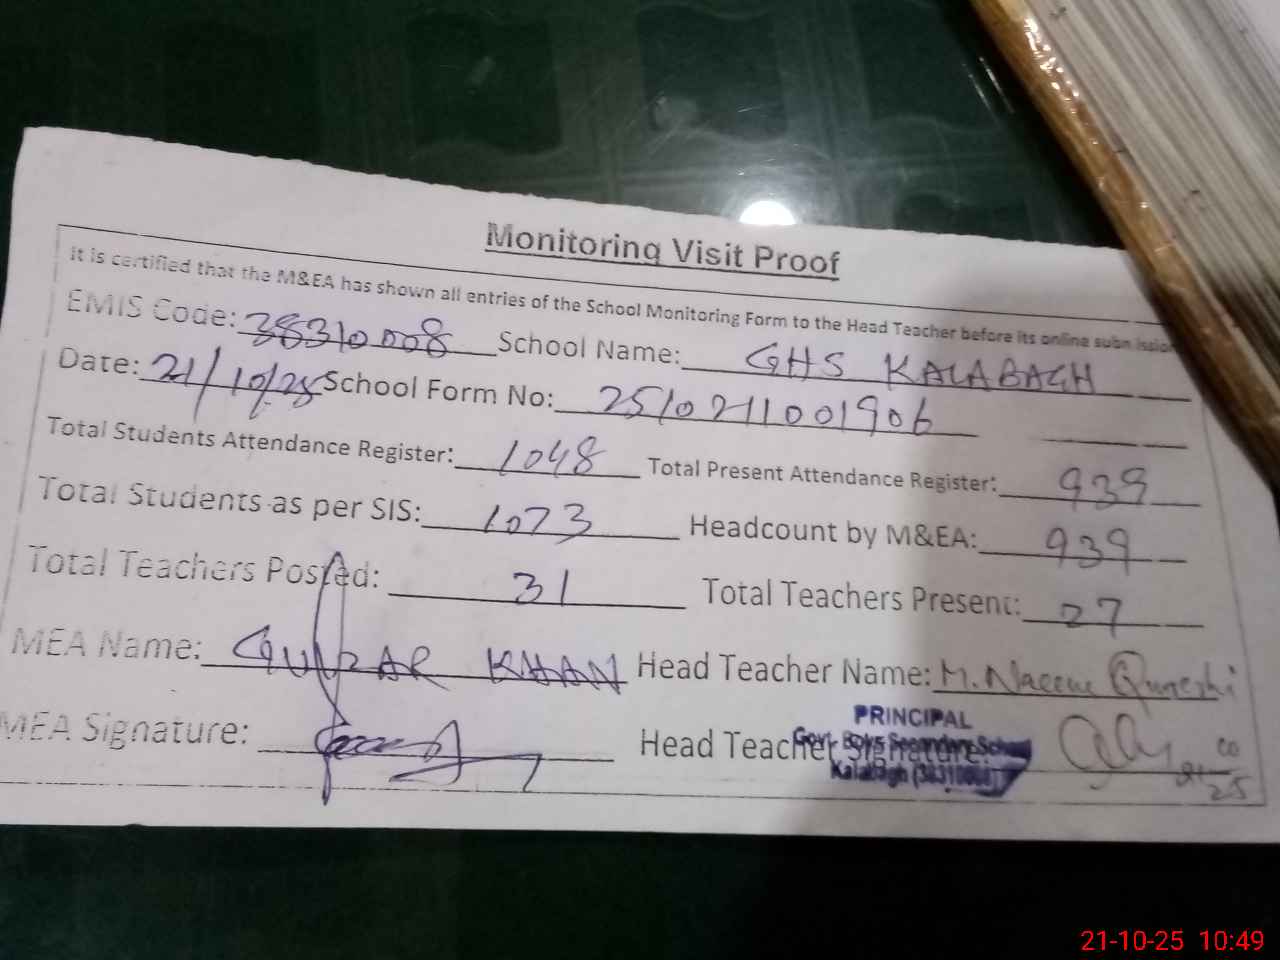 Monitoring Visit Proof
It is certified that the M&EA has shown all entries of the School Monitoring Form to the Head Teacher before its online submission
EMIS Code: 38310008 School Name: GHS KALABAGH
Date: 21/10/25 School Form No: 2510211001906
Total Students Attendance Register: 1048 Total Present Attendance Register: 939
Total Students as per SIS: 1073 Headcount by M&EA: 939
Total Teachers Posted: 31 Total Teachers Present: 27
MEA Name: GULZAR KHAN Head Teacher Name: M. Naeem Qureshi
PRINCIPAL
MEA Signature: Head Teacher Signature:
Govt. Boys Secondary School
Kalabagh (38310008)
21-10-25 10:49